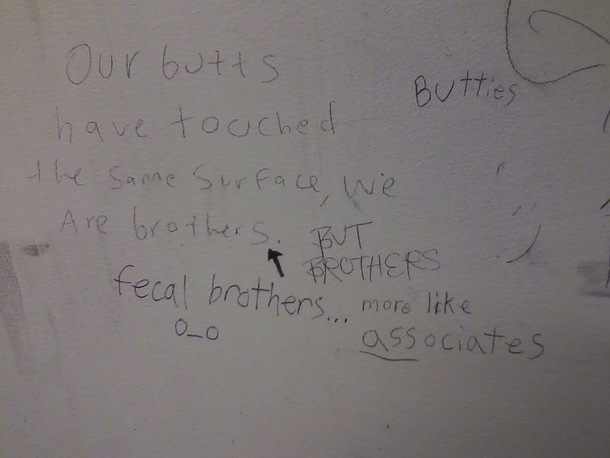 Our butts
have touched
the same surface, we
Are brothers.
Butties
BUT
BROTHERS
fecal brothers...
o_o
more like
associates